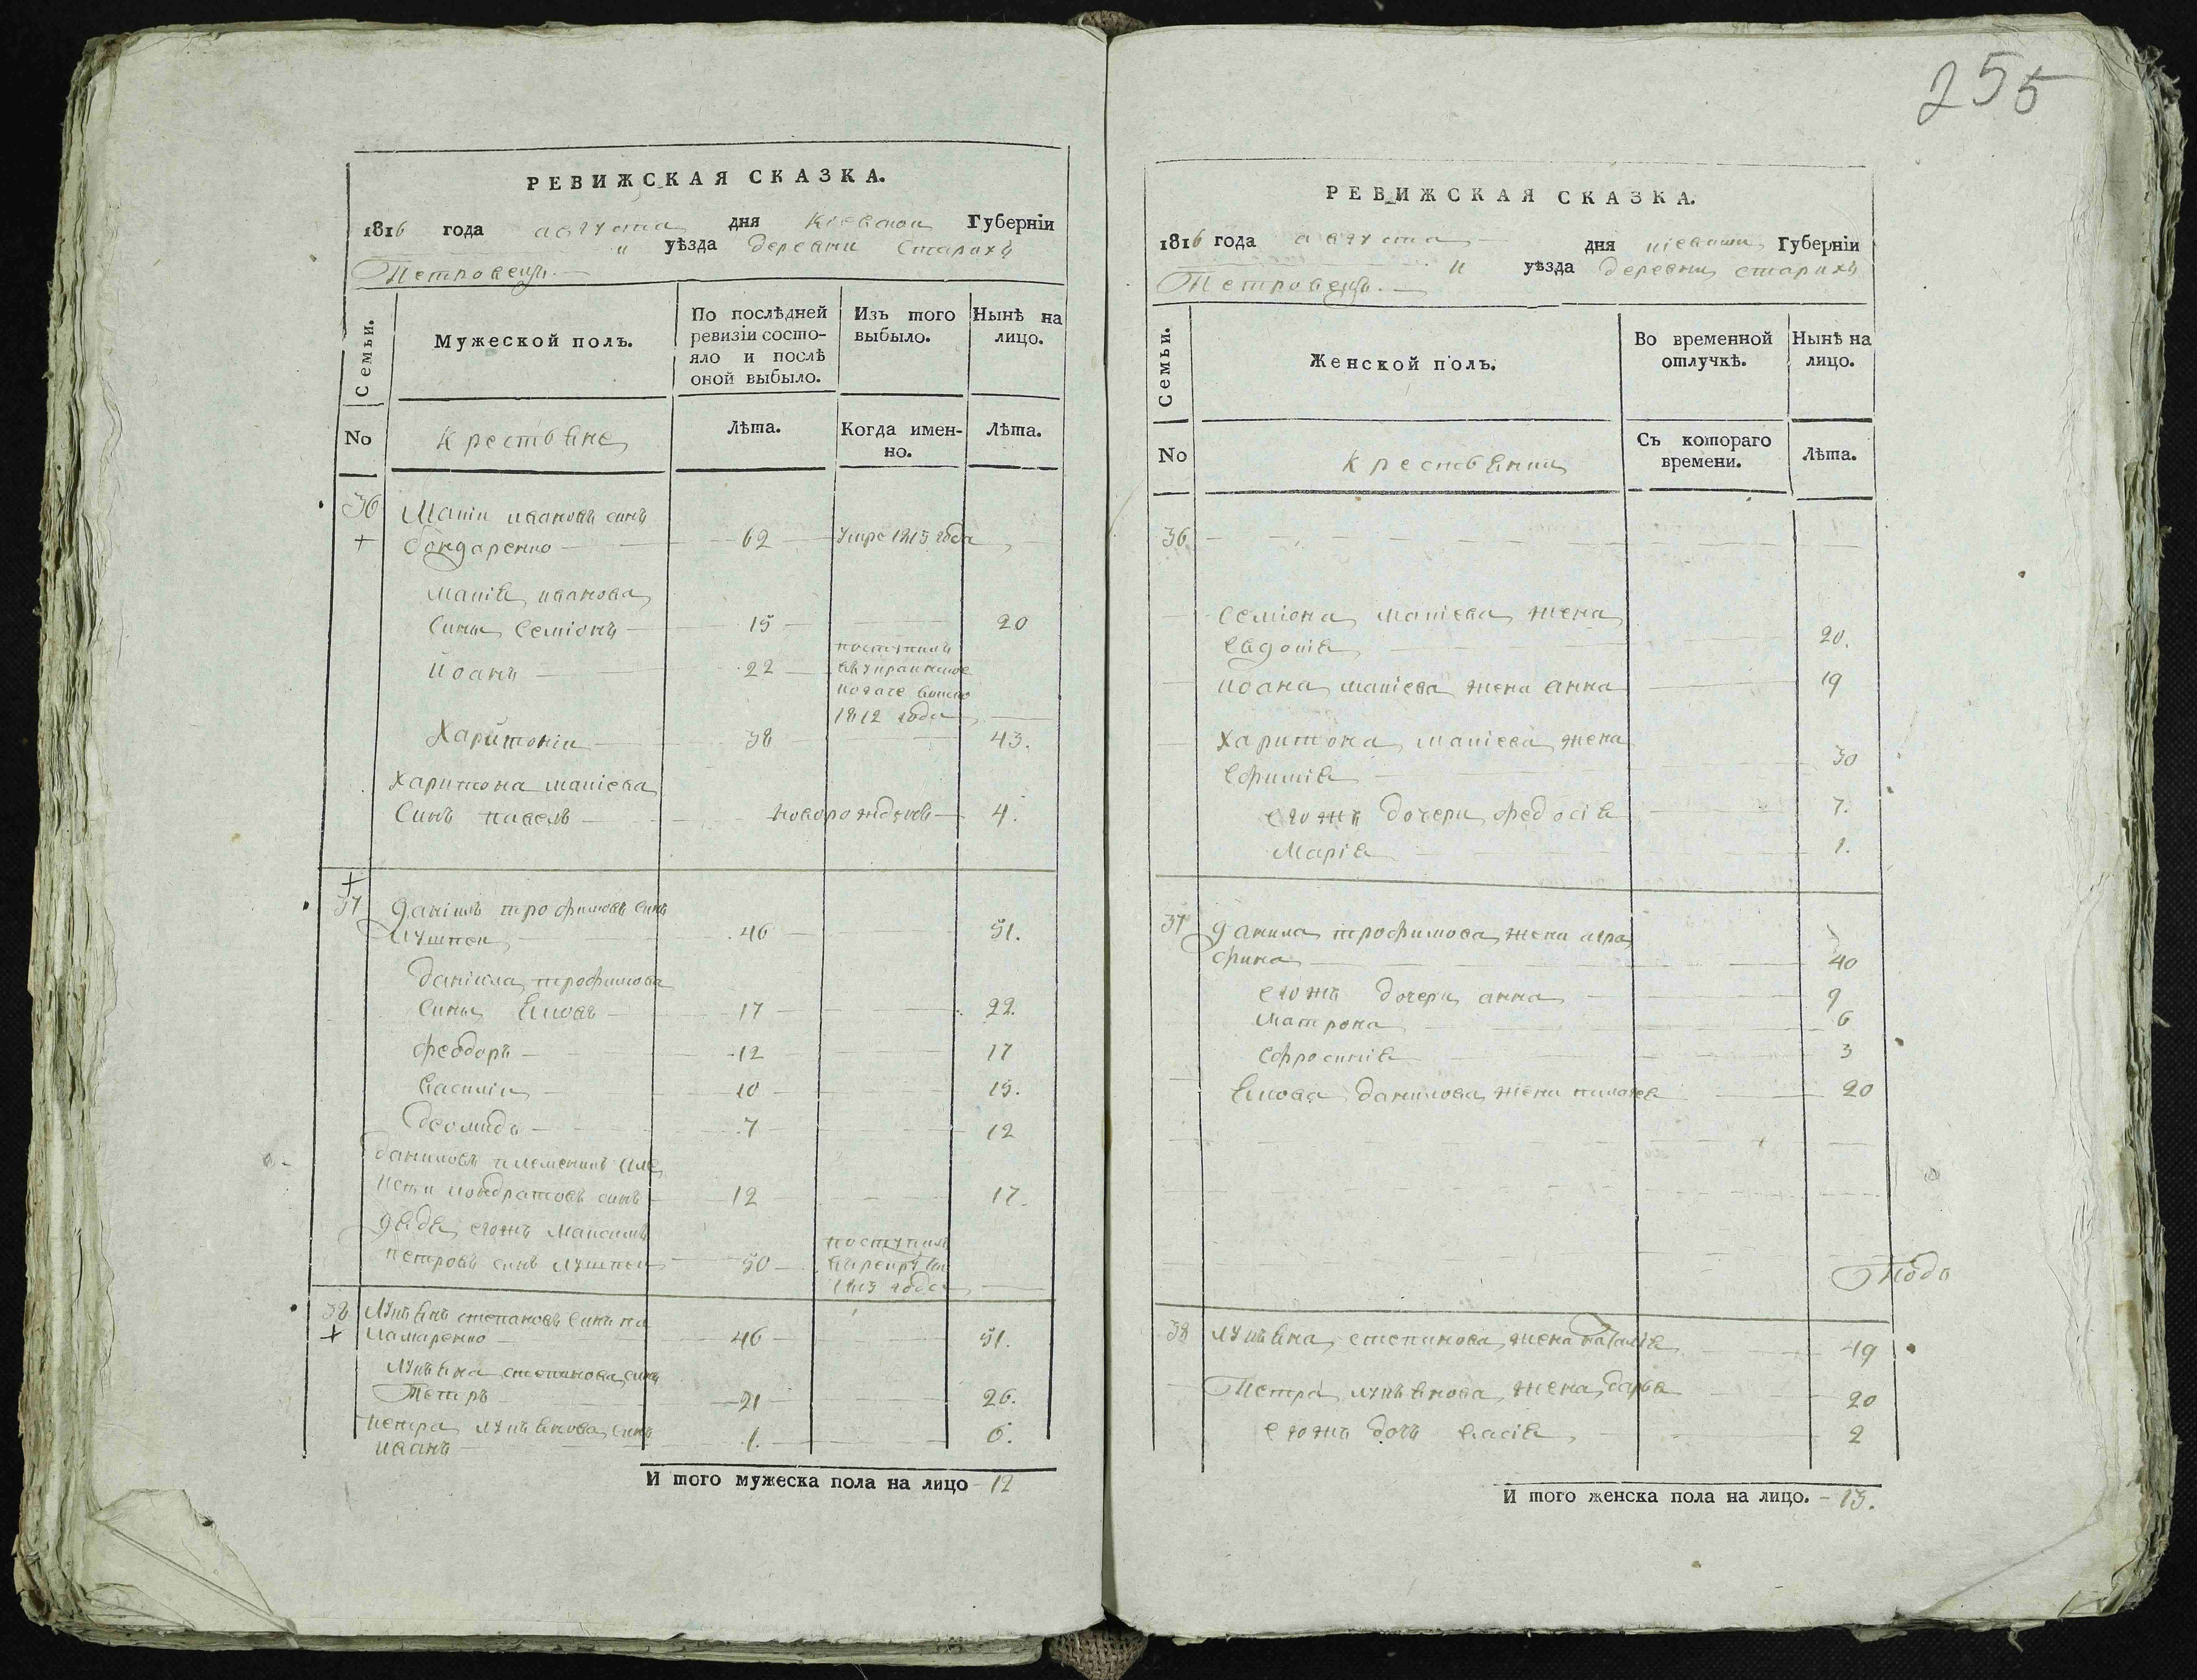 255
РЕВИЖСКАЯ СКАЗКА.
1816 года августа дня Кіевской Губерніи
и уѣзда деревни Старихъ
Петровецъ.
Семьи.
Мужеской полъ.
По послѣдней ревизіи состо-
яло и послѣ оной выбыло.
Изъ того выбыло.
Нынѣ на лицо.
No
Крестьяне
Лѣта.
Когда имен-
но.
Лѣта.
36 Мапіи ивановъ синъ
бондаренко 62 Умре 1813 года
мапія иванова
сины Семіонъ 15 20
иоанъ 22 поступилъ
козаче
1812 года
Харитоніи 38 43.
Харитона мапіева
Синъ павелъ новорожденъ 4.
37 даніилъ трофимовъ синъ
Лушпеи 46 51.
даніила трофимова
сины Яковъ 17 22.
феодоръ 12 17
василіи 10 15.
7 12
даниловъ племеникъ
кондратовъ синъ 12 17.
дядя егожъ максимъ
петровъ синъ лушпеи 50 поступилъ
1813 года
38 Лукянъ степановъ синъ па
ламаренко 46 51.
Лукяна степанова синъ
Петръ 21 26.
петра лукянова синъ
иванъ 1. 6.
И того мужеска пола на лицо 12
РЕВИЖСКАЯ СКАЗКА.
1816 года августа дня кіевской Губерніи
и уѣзда деревни старихъ
Петровецъ.
Семьи.
Женской полъ.
Во временной отлучкѣ.
Нынѣ на лицо.
No
Крестьянки
Съ котораго времени.
Лѣта.
36
Семіона мапіева жена
Евдокія 20.
иоана мапіева жена анна 19
Харитона мапіева жена
Ефимія 30
егожъ дочери федосія 7.
Марія 1.
37 данила трофимова жена агра
фина 40
егожъ дочери анна 9
матрона 6
Ефросинія 3
Якова данилова жена 20
38 лукяна степанова жена наталія 49
Петра лукянова жена дарья 20
егожъ дочь васія 2
И того женска пола на лицо. 13.